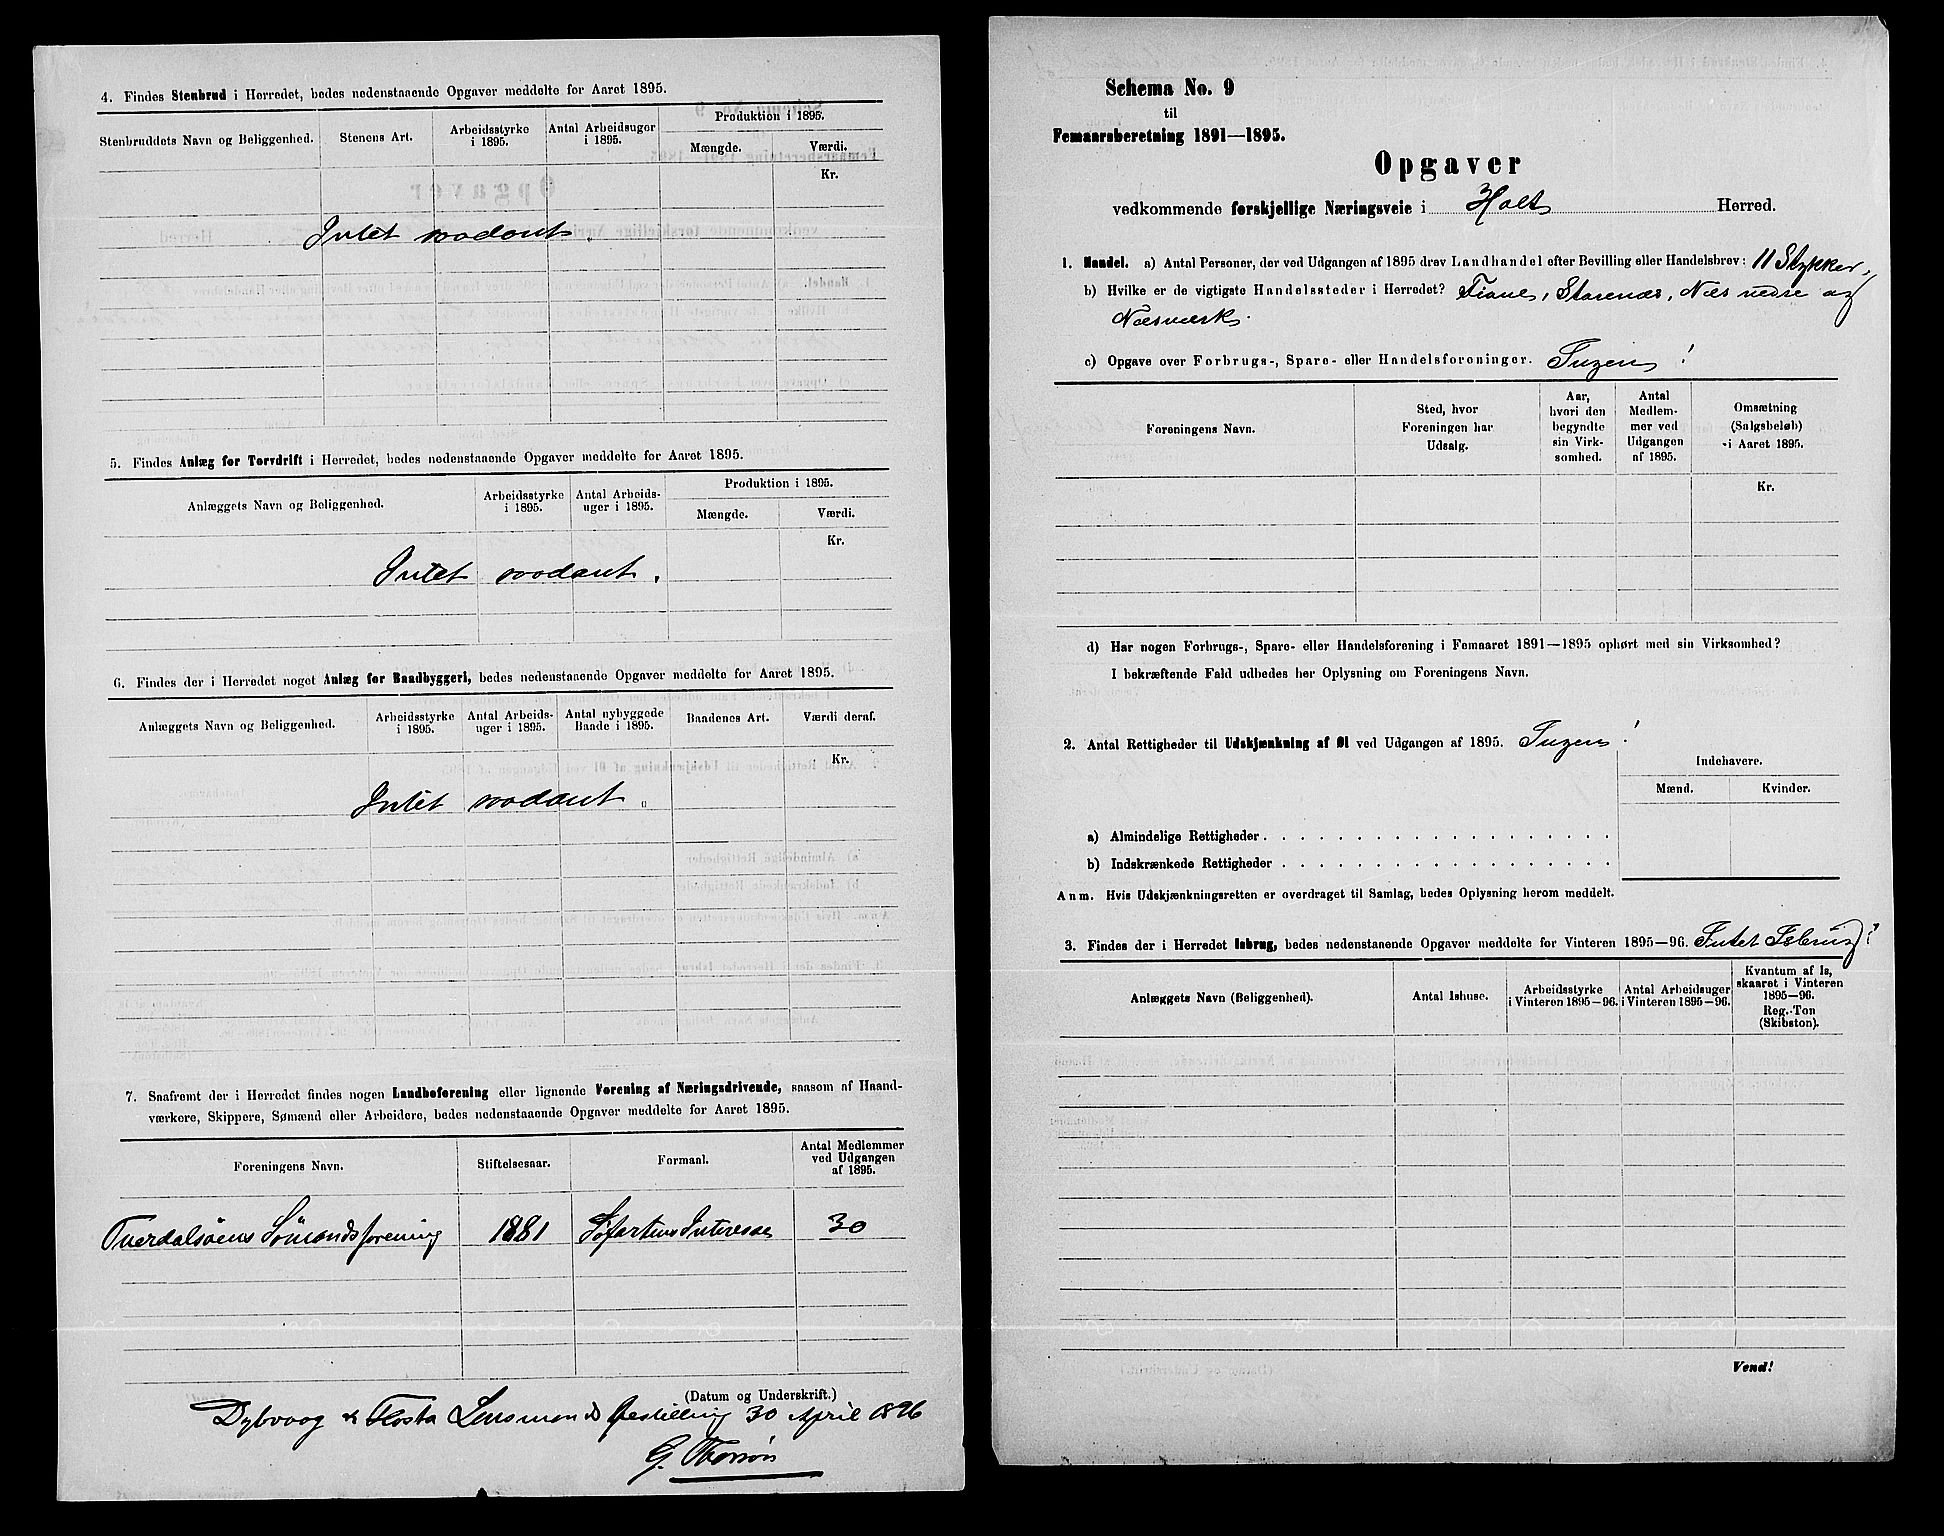 4. Findes Stenbrud i Herredet, bedes nedenstaaende Opgaver meddelte for Aaret 1895.
Stenbruddets Navn og Beliggenhed.
Stenens Art.
Arbeidsstyrke
i 1895.
Antal Arbeidsuger
i 1895.
Produktion i 1895.
Mængde.
Værdi.
Kr.
Intet saadant.
5. Findes Anlæg for Torvdrift i Herredet, bedes nedenstaaende Opgaver meddelte for Aaret 1895.
Anlæggets Navn og Beliggenhed.
Arbeidsstyrke
i 1895.
Antal Arbeids-
uger i 1895.
Produktion i 1895.
Mængde.
Værdi.
Kr.
Intet saadant.
6. Findes der i Herredet noget Anlæg for Baadbyggeri, bedes nedenstaaende Opgaver meddelte for Aaret 1895.
Anlæggets Navn og Beliggenhed.
Arbeidsstyrke
i 1895.
Antal Arbeids-
uger i 1895.
Antal nybyggede
Baade i 1895.
Baadenes Art.
Værdi deraf.
Kr.
Intet saadant.
7. Saafremt der i Herredet findes nogen Landboforening eller lignende Forening af Næringsdrivende, saasom af Haand-
værkere, Skippere, Sømænd eller Arbeidere, bedes nedenstaaende Opgaver meddelte for Aaret 1895.
Foreningens Navn.
Stiftelsesaar.
Formaal.
Antal Medlemmer
ved Udgangen
af 1895.
Tverdalsöens Sömandsforening 1881 Søfartens Interesse 30
(Datum og Underskrift.)
Dybvaag & Flosta Lensmands Bestilling 30 April 1896
G.
Schema No. 9
til
Femaarsberetning 1891—1895.
Opgaver
vedkommende forskjellige Næringsveie i Holt Herred.
1. Handel. a) Antal Personer, der ved Udgangen af 1895 drev Landhandel efter Bevilling eller Handelsbrev: 11 Stykker,
b) Hvilke er de vigtigste Handelssteder i Herredet? Fiane, Staurenæs, Næs nedre og
Næsværk.
c) Opgave over Forbrugs-, Spare- eller Handelsforeninger. Ingen!
Foreningens Navn.
Sted, hvor
Foreningen har
Udsalg.
Aar,
hvori den
begyndte
sin Virk-
somhed.
Antal
Medlem-
mer ved
Udgangen
af 1895.
Omsætning
(Salgsbeløb)
i Aaret 1895.
Kr.
d) Har nogen Forbrugs-, Spare- eller Handelsforening i Femaaret 1891—1895 ophørt med sin Virksomhed?
I bekræftende Fald udbedes her Oplysning om Foreningens Navn.
2. Antal Rettigheder til Udskjænkning af Øl ved Udgangen af 1895. Ingen!
Indehavere.
Mænd.
Kvinder.
a) Almindelige Rettigheder
b) Indskrænkede Rettigheder
Anm. Hvis Udskjænkningsretten er overdraget til Samlag, bedes Oplysning herom meddelt.
3. Findes der i Herredet Isbrug, bedes nedenstaaende Opgaver meddelte for Vinteren 1895—96. Intet Isbrug!
Anlæggets Navn (Beliggenhed).
Antal Ishuse.
Arbeidsstyrke
i Vinteren 1895—96.
Antal Arbeidsuger
i Vinteren 1895—96.
Kvantum af Is,
skaaret i Vinteren
1895—96.
Reg.-Ton
(Skibston).
Vend!